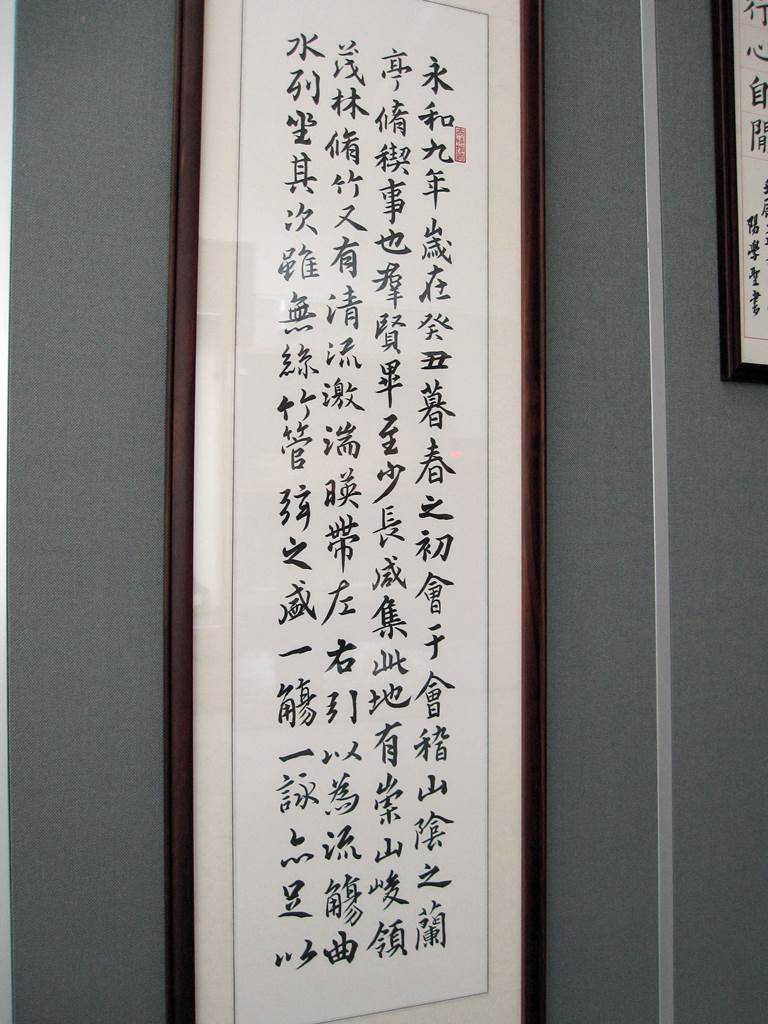 永和九年歲在癸丑暮春之初會于會稽山陰之蘭
亭脩稧事也羣賢畢至少長咸集此地有崇山峻領
茂林脩竹又有清流激湍暎帶左右引以為流觴曲
水列坐其次雖無絲竹管弦之盛一觴一詠亦足以
行心自閒
陽學聖書